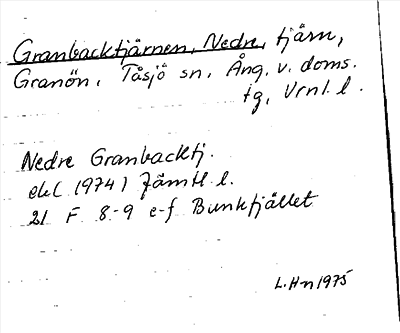 Granbacktjärnen, Nedre, tjärn,
Granön, Tåsjö sn, Ång. v. doms.
tg, Vrnl. l.
Nedre Granbacktj.
ekl (1974) Jämtl. l.
21 F 8-9 e-f Bunkfjället
L.Hn 1975